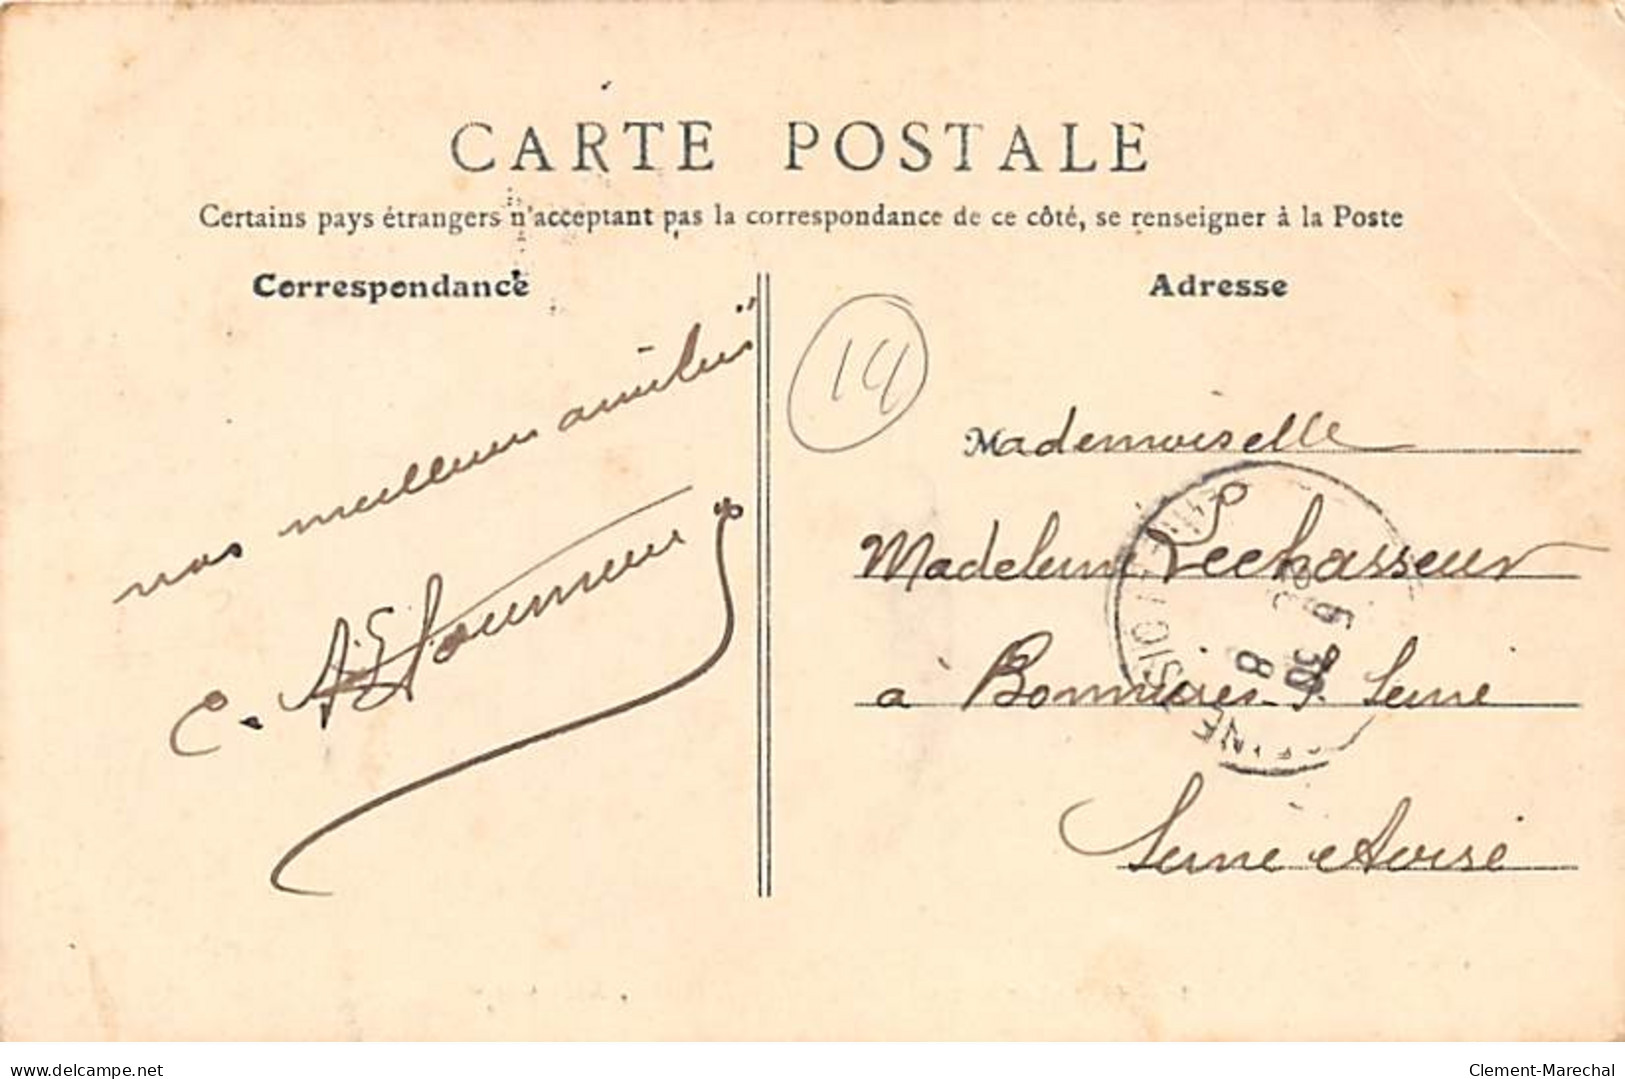 CARTE POSTALE
Certains pays étrangers n'acceptant pas la correspondance de ce côté, se renseigner à la Poste
Correspondance
Adresse
14
nos meilleures amitiés
Mademoiselle
Madeleine Lechasseur
à Bonnières s/ Seine
Seine et Oise
delcampe.net
Clement-Marechal